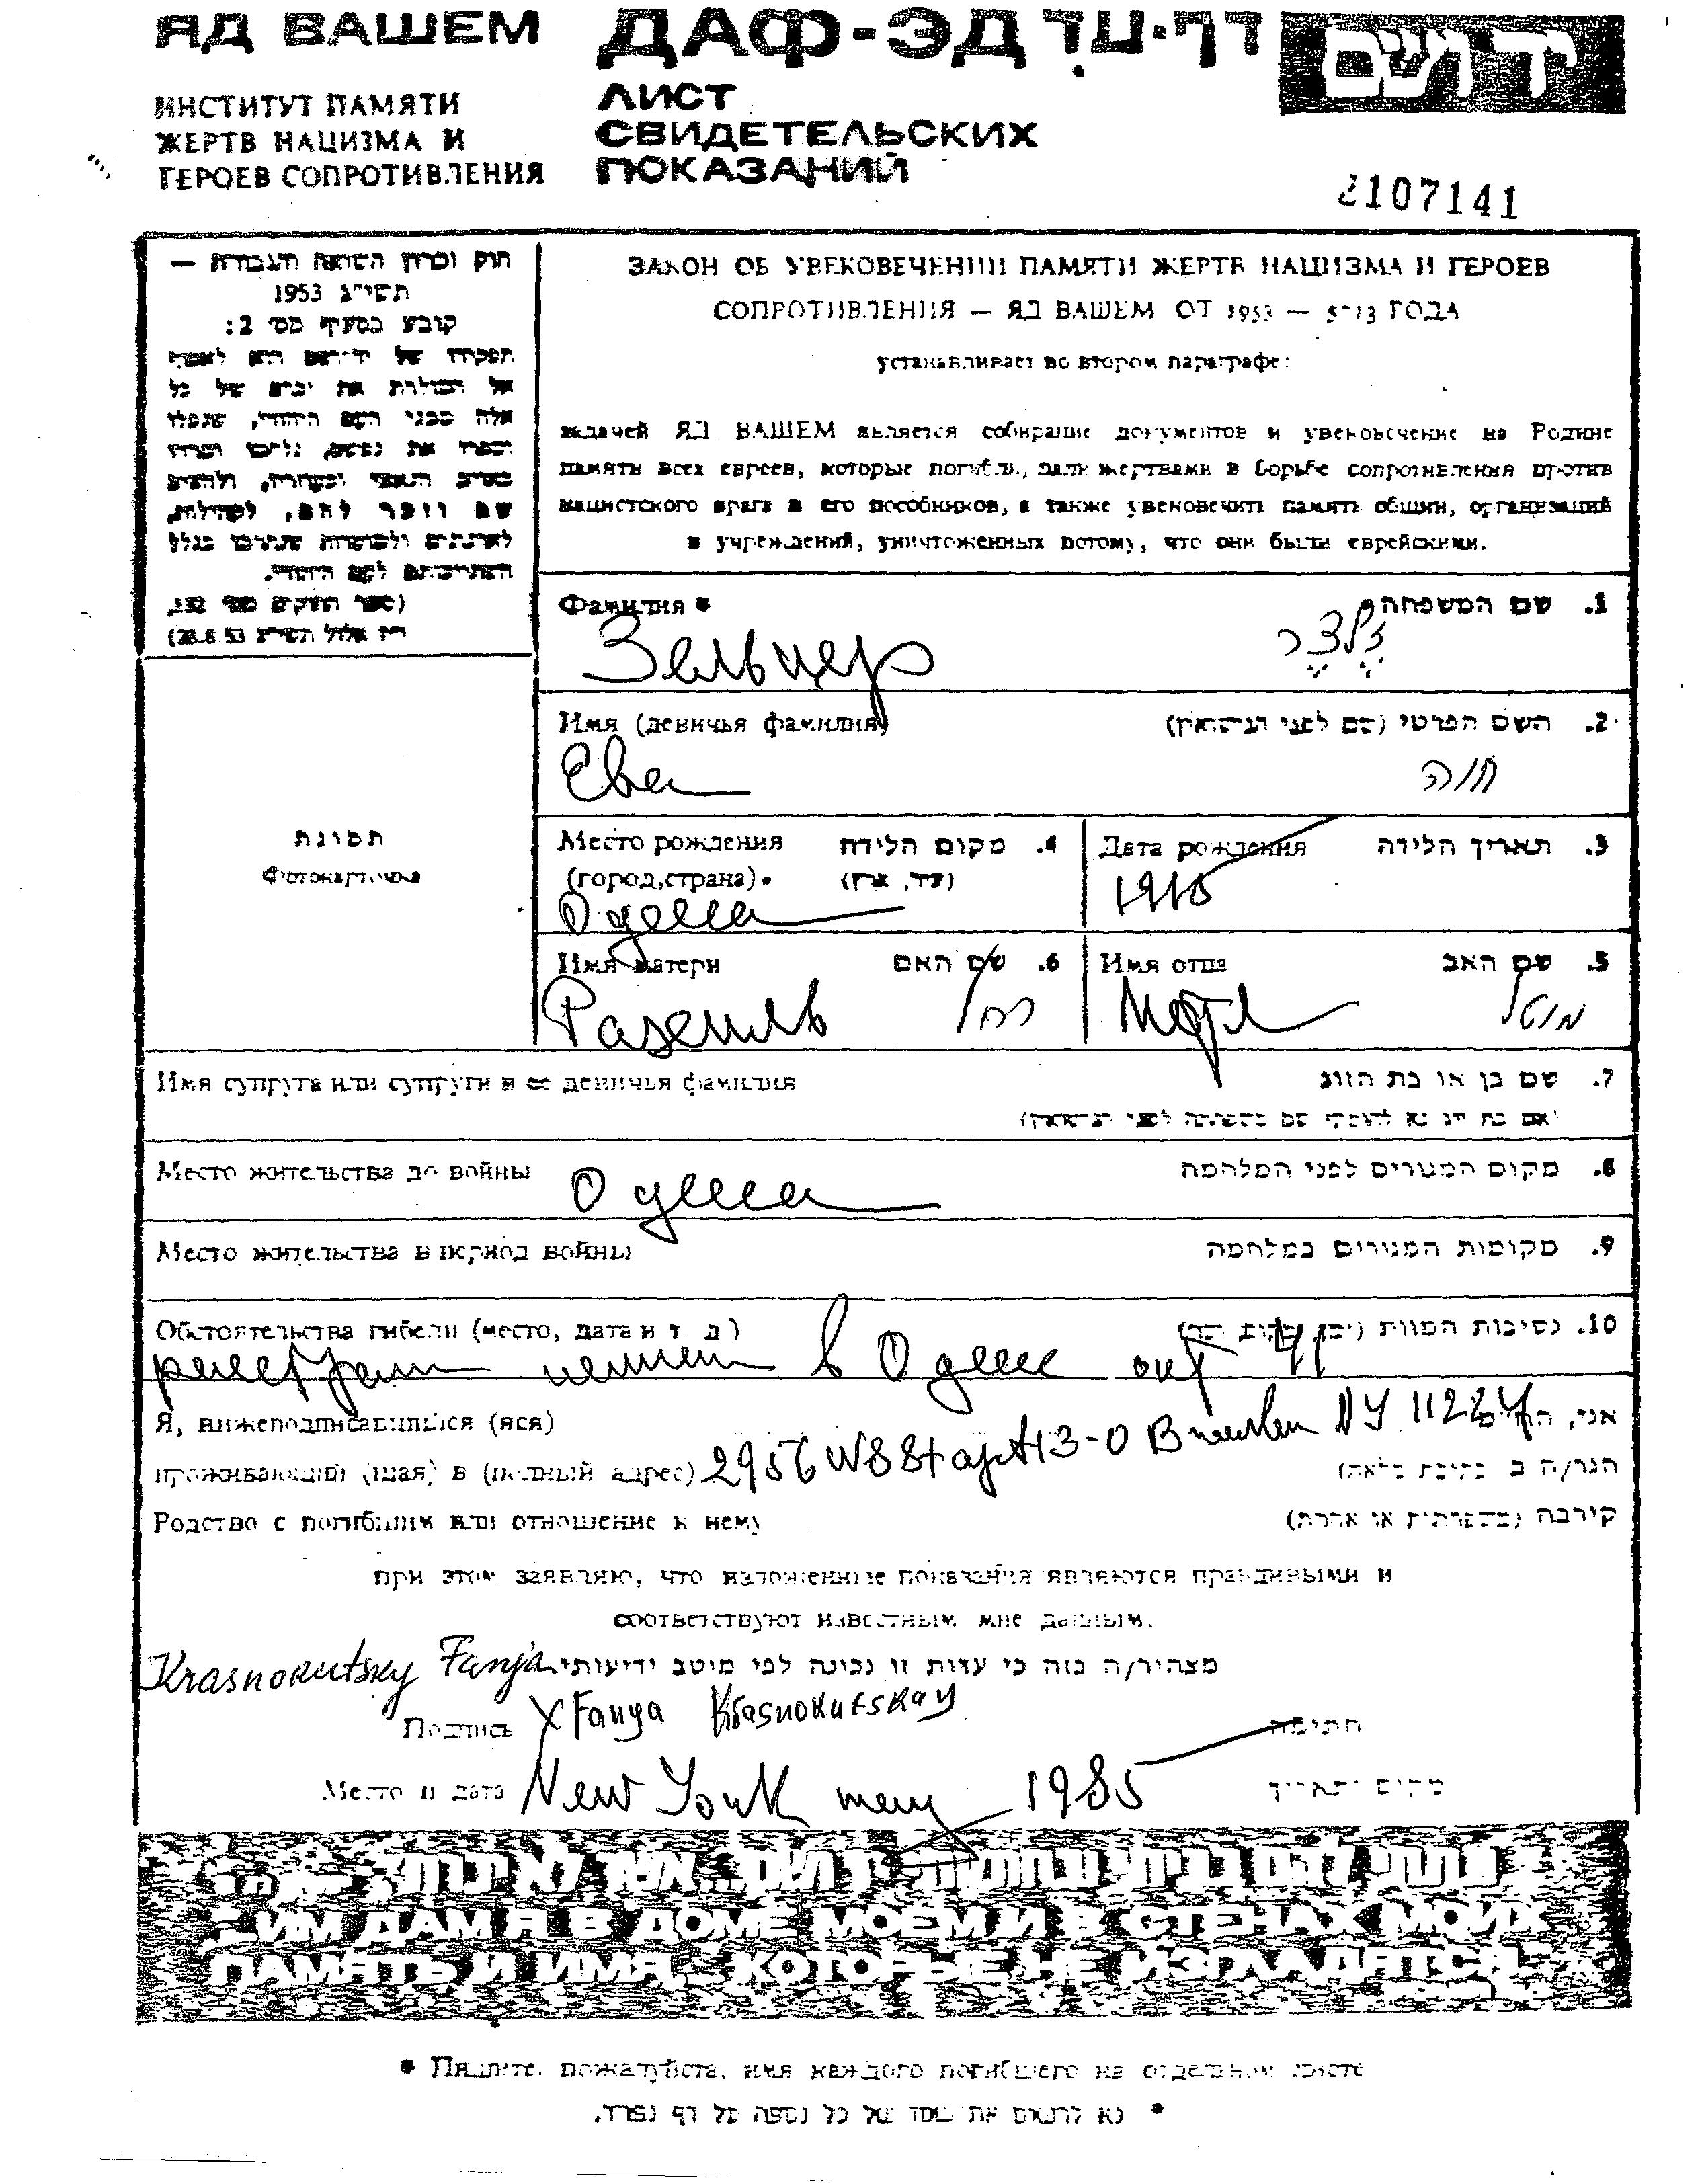 ЯД ВАШЕМ ДАФ-ЭД דף-עד יד ושם
ИНСТИТУТ ПАМЯТИ
ЖЕРТВ НАЦИЗМА И
ГЕРОЕВ СОПРОТИВЛЕНИЯ
ЛИСТ
СВИДЕТЕЛЬСКИХ
ПОКАЗАНИЙ
2107141
חוק זכרון השואה והגבורה —
תשי"ג 1953
קובע בסעיף מס' 2:
תפקידו של יד-ושם הוא לאסוף
אל המולדת את זכרם של כל
אלה מבני העם היהודי, שנפלו
ומסרו את נפשם, נלחמו ומרדו
באויב הנאצי ובעוזריו, ולהציב
שם וזכר להם, לקהילות,
לארגונים ולמוסדות שנחרבו בגלל
השתייכותם לעם היהודי.
(ספר החוקים מס' 132,
י"ז אלול תשי"ג 28.8.53)
ЗАКОН ОБ УВЕКОВЕЧЕНИИ ПАМЯТИ ЖЕРТВ НАЦИЗМА И ГЕРОЕВ
СОПРОТИВЛЕНИЯ — ЯД ВАШЕМ ОТ 1953 — 5713 ГОДА
устанавливает во втором параграфе:
задачей ЯД ВАШЕМ является собирание документов и увековечение на Родине
памяти всех евреев, которые погибли, пали жертвами в борьбе сопротивления против
нацистского врага и его пособников, а также увековечить память общин, организаций
и учреждений, уничтоженных потому, что они были еврейскими.
Фамилия * 1. שם המשפחה*
Зельцер זֶלצֶר
Имя (девичья фамилия) 2. השם הפרטי (שם לפני הנישואין)
Ева חוה
תמונת
Фотокарточка
Место рождения 4. מקום הלידה
(город, страна) (עיר, ארץ)
Одесса
Дата рождения 3. תאריך הלידה
1915
Имя матери 6. שם האם
רחל
Имя отца 5. שם האב
Мотл מוטל
Имя супруга или супруги и ее девичья фамилия 7. שם בן או בת הזוג
(אם בת זוג נא להוסיף שם משפחה לפני הנישואין)
Место жительства до войны 8. מקום המגורים לפני המלחמה
Одесса
Место жительства в период войны 9. מקומות המגורים במלחמה
Обстоятельства гибели (место, дата и т. д.) 10. נסיבות המוות
в Одессе окт 41
Я, нижеподписавшийся (яся) אני, הח"מ
проживающий (щая) в (полный адрес) 2956 W8St apt 13-0 NY 11224 הגר/ה ב
Родство с погибшим или отношение к нему קירבה (משפחתית או אחרת)
при этом заявляю, что изложенные показания являются правдивыми и
соответствуют известным мне данным.
Krasnokutsky Fanja מצהיר/ה בזה כי עדות זו נכונה לפי מיטב ידיעותי.
Подпись X Fanya Krasnokutskay חתימה
Место и дата New York may 1985 מקום ותאריך
ИМ ДАМ Я В ДОМЕ МОЕМ И В СТЕНАХ МОИХ
ПАМЯТЬ И ИМЯ... КОТОРЫЕ НЕ ИЗГЛАДЯТСЯ
* Пишите, пожалуйста, имя каждого погибшего на отдельном листе
* נא לרשום את שמו של כל נספה על דף נפרד.